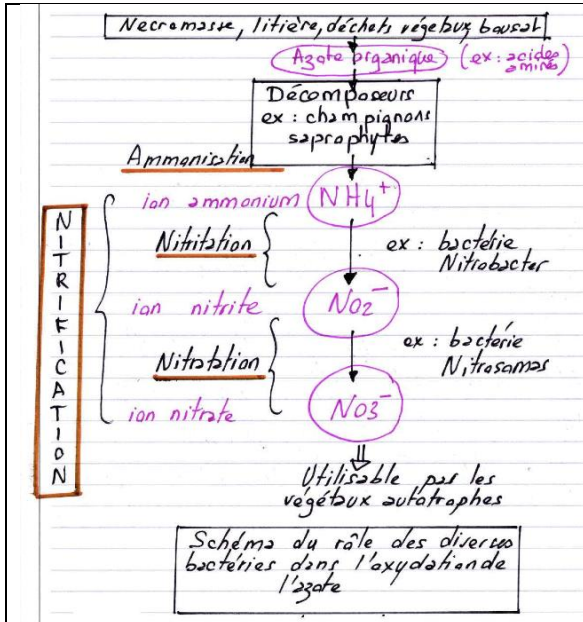 Necromasse, litière, déchets végétaux bousat
Azote organique (ex : acides
aminés)
Décomposeurs
ex : champignons
saprophytes
Ammonisation
ion ammonium NH4+
Nitritation ex : bactérie
Nitrobacter
ion nitrite NO2-
Nitratation ex : bactérie
Nitrosamas
ion nitrate NO3-
NITRIFICATION
Utilisable par les
végétaux autotrophes
Schéma du rôle des diverses
bactéries dans l'oxydation de
l'azote